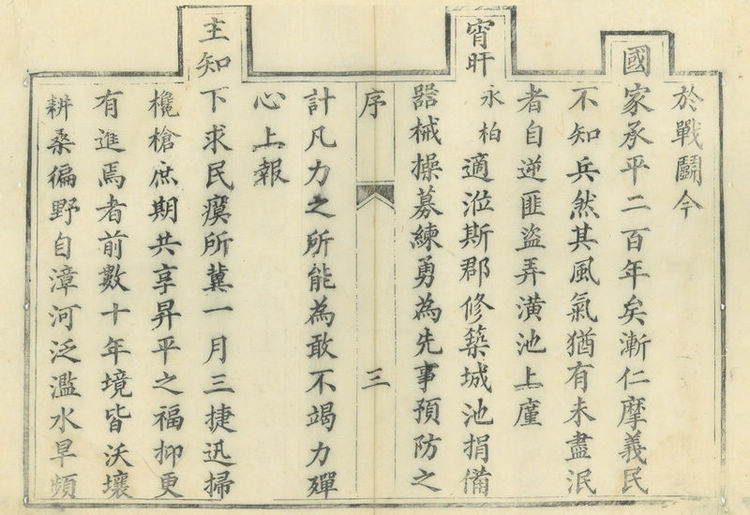 於戰鬪今
國家承平二百年矣漸仁摩義民
不知兵然其風氣猶有未盡泯
者自逆匪盜弄潢池上廑
宵旰永柏適涖斯郡修築城池捐備
器械操募練勇為先事預防之
序 三
計凡力之所能為敢不竭力殫
心上報
主知下求民瘼所冀一月三捷迅掃
欃槍庶期共享昇平之福抑更
有進焉者前數十年境皆沃壤
耕桑偏野自漳河泛濫水旱頻